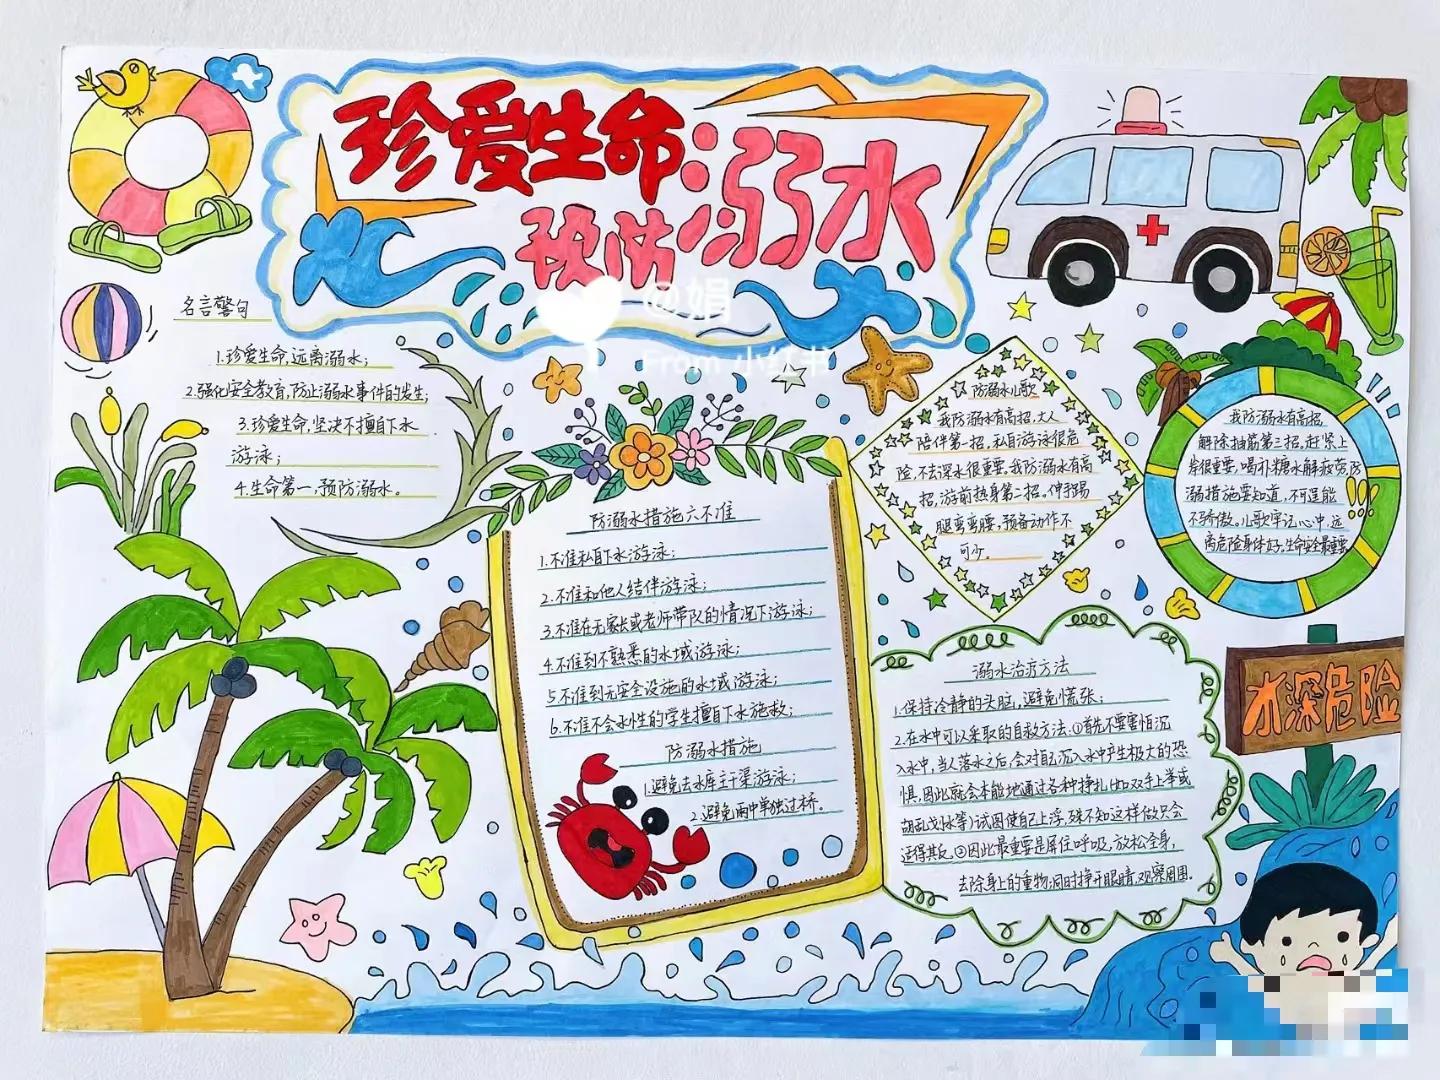 珍爱生命
预防溺水
@娟
From 小红书
名言警句
1.珍爱生命,远离溺水;
2.强化安全教育,防止溺水事件的发生;
3.珍爱生命,坚决不擅自下水
游泳;
4.生命第一,预防溺水。
防溺水措施六不准
1.不准私自下水游泳;
2.不准和他人结伴游泳;
3.不准在无家长或老师带队的情况下游泳;
4.不准到不熟悉的水域游泳;
5.不准到无安全设施的水域游泳;
6.不准不会水性的学生擅自下水施救;
防溺水措施
1.避免去水库主干渠游泳;
2.避免雨中单独过桥。
防溺水儿歌
我防溺水有高招,大人
陪伴第一招,私自游泳很危
险,不去深水很重要。我防溺水有高
招,游前热身第二招。伸手踢
腿弯弯腰,预备动作不
可少。
我防溺水有高招,
解除抽筋第三招,赶紧上
岸很重要,喝补糖水解疲劳,防
溺措施要知道,不可逞能
不骄傲。儿歌牢记心中,远
离危险身体好,生命安全最重要
溺水治疗方法
1.保持冷静的头脑,避免慌张;
2.在水中可以采取的自救方法:①首先不要害怕沉
入水中,当人落水之后,会对自己沉入水中产生极大的恐
惧,因此就会本能地通过各种挣扎(如双手上举或
胡乱划水等)试图使自己上浮,殊不知这样做只会
适得其反。②因此最重要是屏住呼吸,放松全身,
去除身上的重物,同时睁开眼睛,观察周围。
水深危险